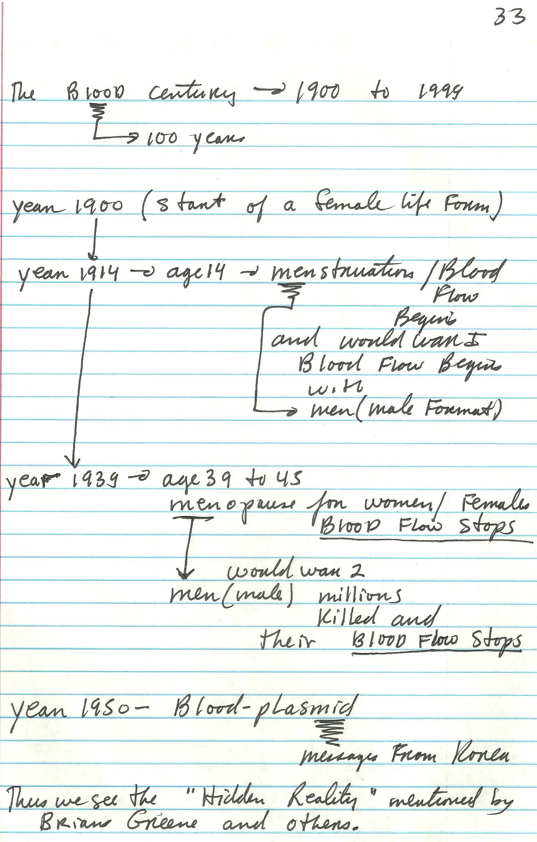 33
The Blood century → 1900 to 1999
→ 100 years
year 1900 (start of a female life Form)
year 1914 → age 14 → menstruation / Blood
Flow
Begins
and would war I
Blood Flow Begins
with
→ men (male Format)
year 1939 → age 39 to 45
menopause for women / Females
Blood Flow Stops
would war 2
men (male) millions
killed and
their Blood Flow Stops
year 1950 - Blood-plasmid
messages From Korea
Thus we see the "Hidden Reality" mentioned by
Brian Greene and others.